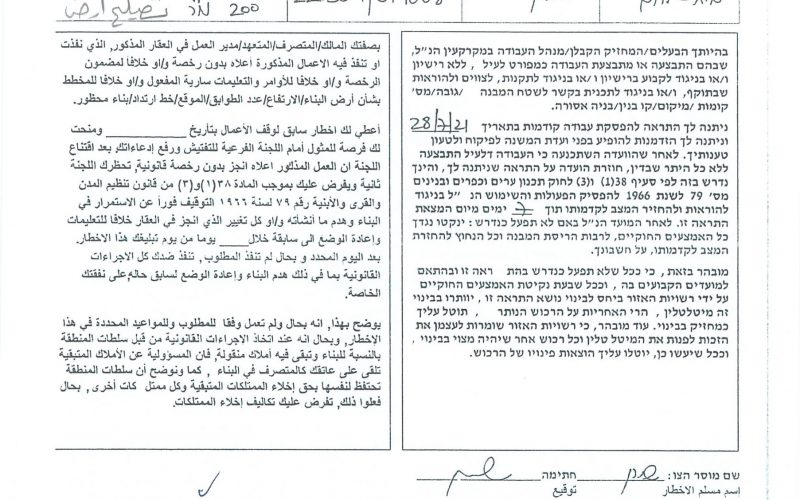 200
بصفتك المالك/المتصرف/المتعهد/مدير العمل في العقار المذكور, الذي نفذت
او تنفذ فيه الاعمال المذكورة اعلاه بدون رخصة و/او خلافا لمضمون
الرخصة و/او خلافا للأوامر والتعليمات سارية المفعول و/او خلافا للمخطط
بشأن أرض البناء/الارتفاع/عدد الطوابق/الموقع/خط ارتداد/بناء محظور.
أعطي لك اخطار سابق لوقف الأعمال بتأريخ ومنحت
لك فرصة للمثول أمام اللجنة الفرعية للتفتيش ورفع إدعاءاتك, بعد اقتناع
اللجنة ان العمل المذكور اعلاه انجز بدون رخصة قانونية, تحظرك اللجنة
ثانية ويفرض عليك بموجب المادة ٣٨(١)و(٣) من قانون تنظيم المدن
والقرى والأبنية رقم ٧٩ لسنة ١٩٦٦ التوقيف فوراً عن الاستمرار في
البناء وهدم ما أنشأته و/او كل تغيير الذي انجز في العقار خلافا للتعليمات
وإعادة الوضع الى سابقة خلال يوما من يوم تبليغك هذا الاخطار.
بعد اليوم المحدد و بحال لم تنفذ المطلوب, تنفذ ضدك كل الاجراءات
القانونية بما في ذلك هدم البناء وإعادة الوضع لسابق حاله, على نفقتك
الخاصة.
يوضح بهذا, انه بحال ولم تعمل وفقا للمطلوب وللمواعيد المحددة في هذا
الإخطار, وبحال انه عند اتخاذ الاجراءات القانونية من قبل سلطات المنطقة
بالنسبة للبناء وتبقى فيه أملاك منقولة, فان المسؤولية عن الأملاك المتبقية
تلقى على عاتقك كالمتصرف في البناء , كما ونوضح أن سلطات المنطقة
تحتفظ لنفسها بحق إخلاء الممتلكات المتبقية وكل ممتل كات أخرى, بحال
فعلوا ذلك, تفرض عليك تكاليف إخلاء الممتلكات.
בהיותך הבעלים/המחזיק הקבלן/מנהל העבודה במקרקעין הנ"ל,
שבהם התבצעה או מתבצעת העבודה כמפורט לעיל , ללא רישיון
ו/או בניגוד לקבוע ברישיון ו/או בניגוד לתקנות, לצווים ולהוראות
שבתוקף, ו/או בניגוד לתכנית בקשר לשטח המבנה /גובה/מס'
קומות /מיקום/קו בנין/בניה אסורה.
ניתנה לך התראה להפסקת עבודה קודמות בתאריך 28/7/21
וניתנה לך הזדמנות להופיע בפני ועדת המשנה לפיקוח ולטעון
טענותיך. לאחר שהוועדה השתכנעה כי העבודה דלעיל התבצעה
ללא כל היתר שבדין, חוזרת הועדה על התראה שניתנה לך, והינך
נדרש בזה לפי סעיף 38(1) ו(3) לחוק תכנון ערים וכפרים ובנינים
מס' 79 לשנת 1966 להפסיק הפעולות והשימוש הנ "ל בניגוד
להוראות ולהחזיר המצב לקדמותו תוך 7 ימים מיום המצאת
התראה זו. לאחר המועד הנ"ל באם לא תפעל כנדרש: ינקטו נגדך
כל האמצעים החוקיים, לרבות הריסת המבנה וכל הנחוץ להחזרת
המצב לקדמותו, על חשבונך.
מובהר בזאת, כי ככל שלא תפעל כנדרש בהת ראה זו ובהתאם
למועדים הקבועים בה , וככל שבעת נקיטת האמצעים החוקיים
על ידי רשויות האזור ביחס לבינוי נושא התראה זו, יוותרו בבינוי
זה מיטלטלין, הרי האחריות על הרכוש הנותר , תוטל עליך
כמחזיק בבינוי. עוד מובהר, כי רשויות האזור שומרות לעצמן את
הזכות לפנות את המיטל טלין וכל רכוש אחר שיהיה מצוי בבינוי ,
וככל שיעשו כן, יוטלו עליך הוצאות פינויו של הרכוש.
שם מוסר הצו: חתימה:
اسم مسلم الاخطار توقيع